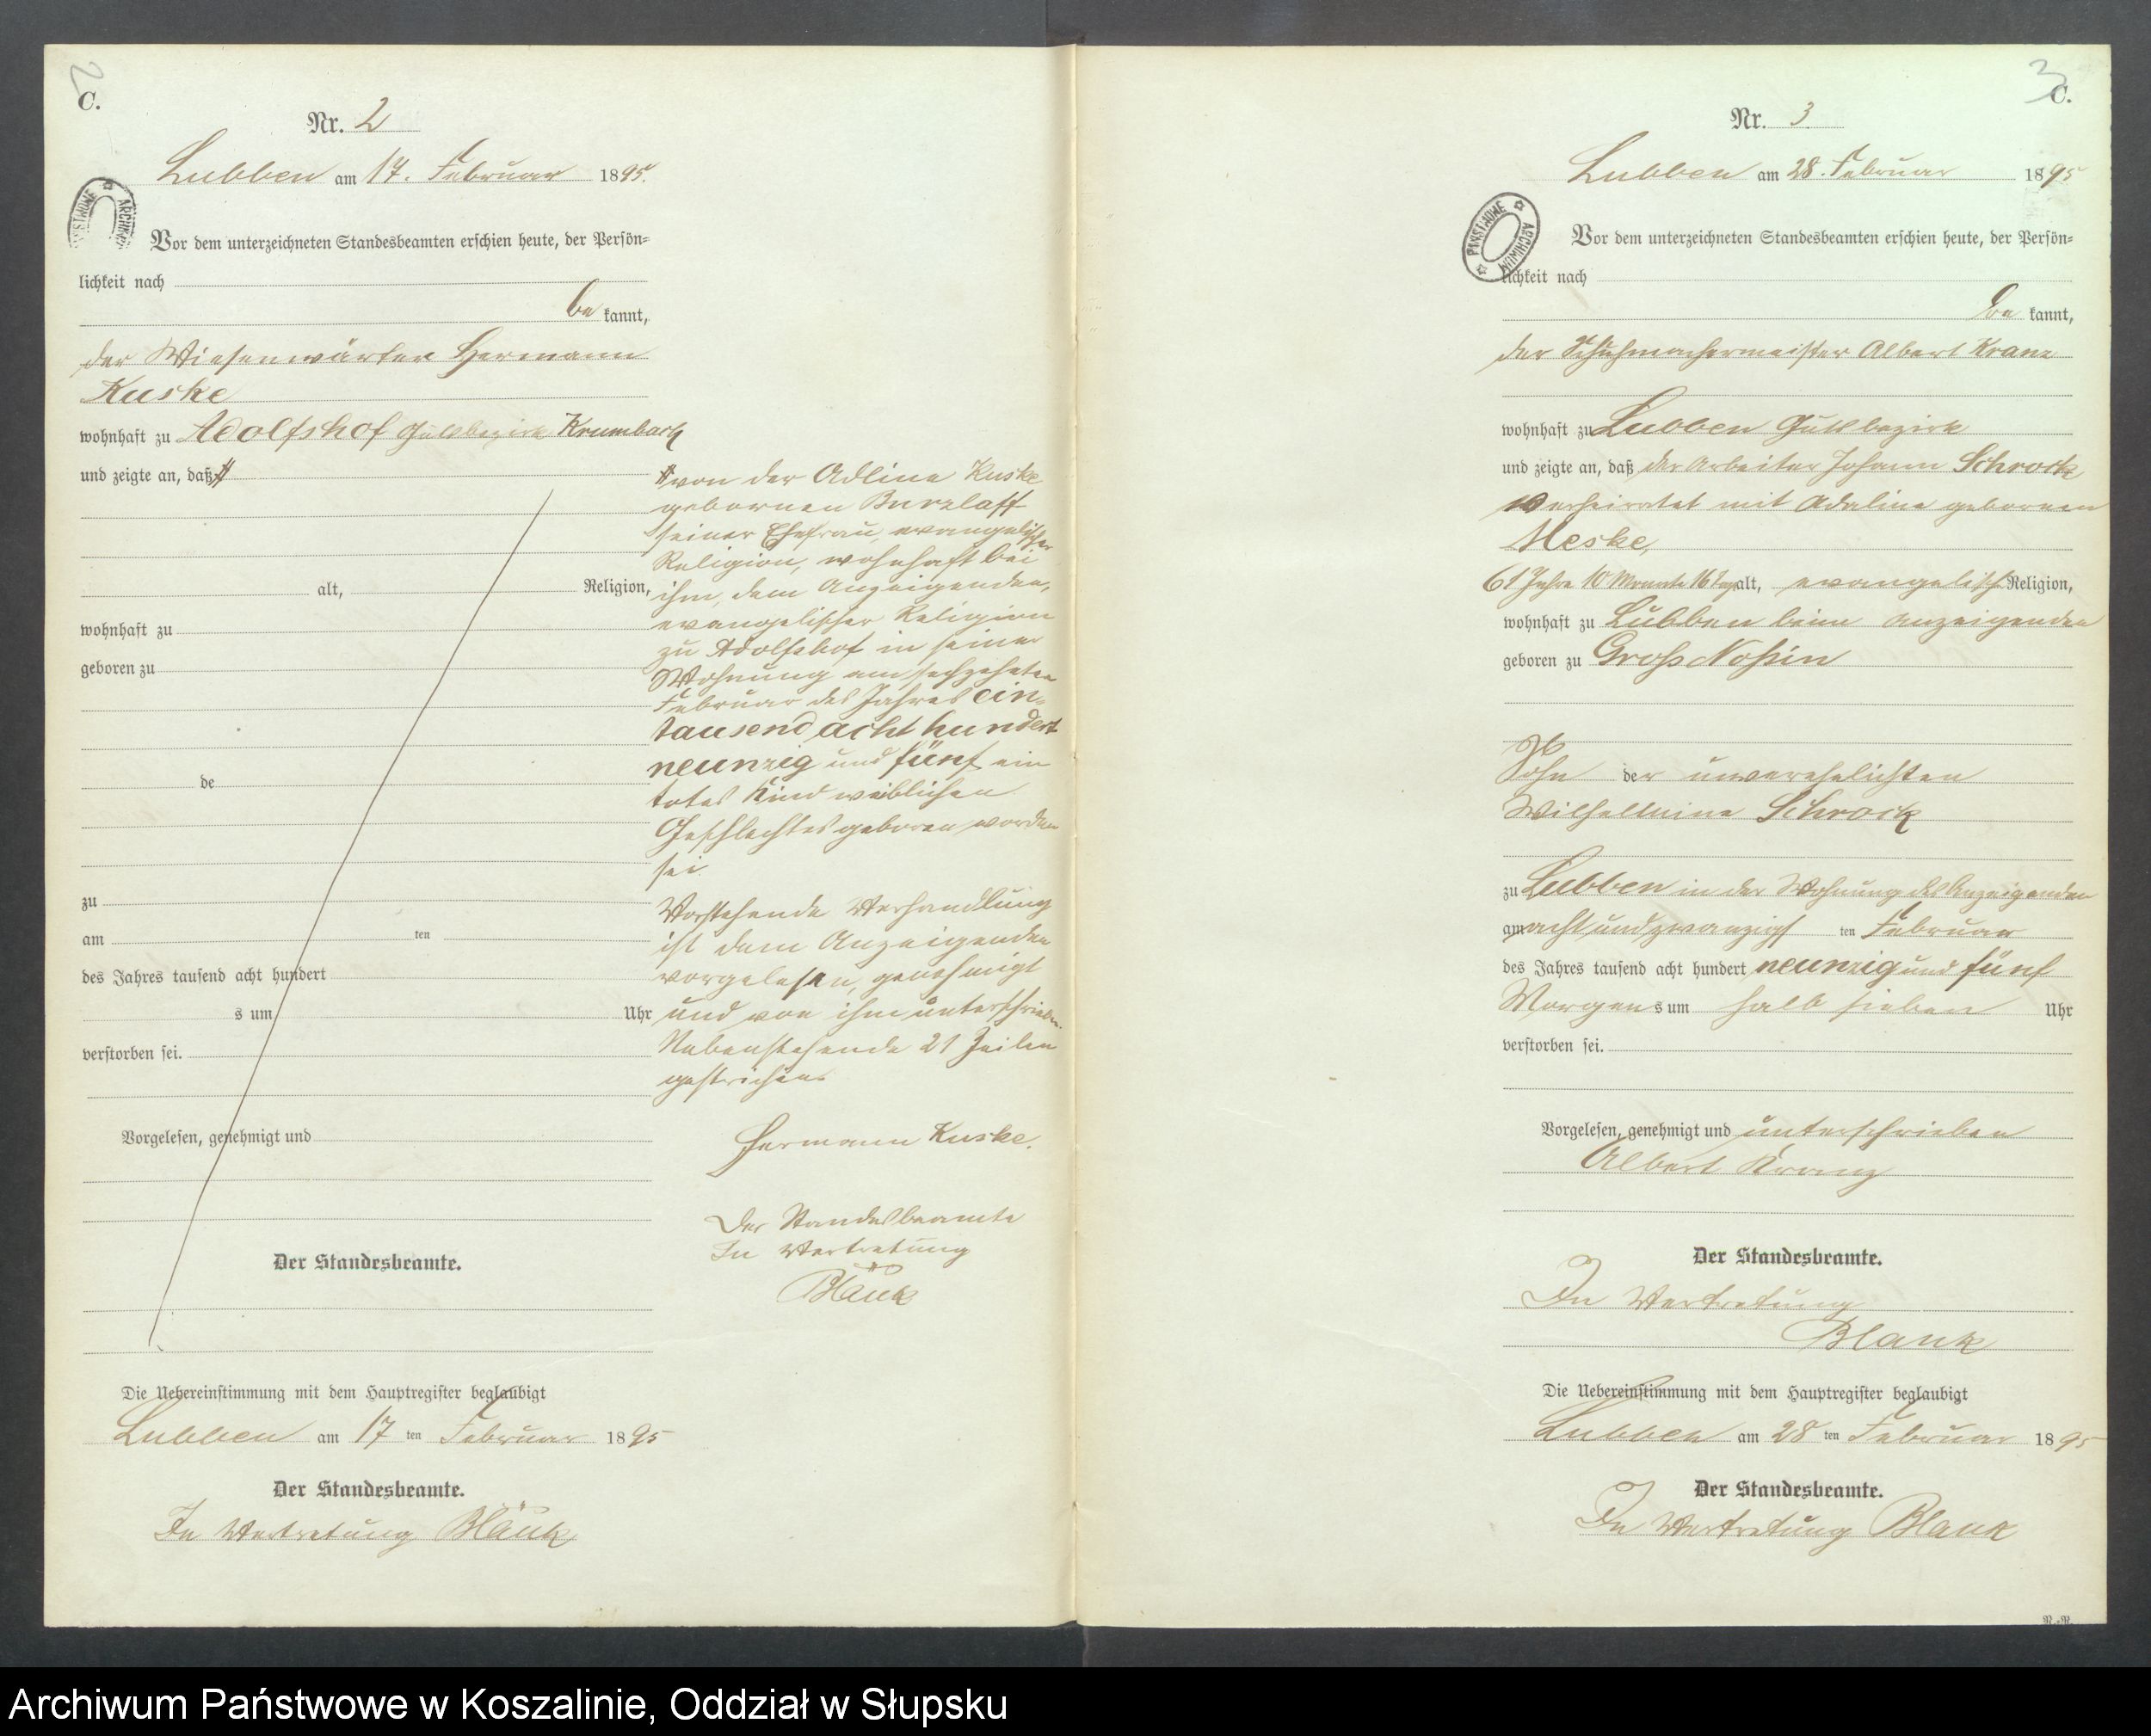 2
C.
Nr. 2
Lubben am 17. Februar 1895.
PAŃSTWOWE ARCHIWUM
Vor dem unterzeichneten Standesbeamten erschien heute, der Persön-
lichkeit nach
be kannt,
der Wiesenwärter Hermann
Kuske
wohnhaft zu Adolfshof Gutsbezirk Krumbach
und zeigte an, daß #
alt, Religion,
wohnhaft zu
geboren zu
de
zu
am ten
des Jahres tausend acht hundert
s um Uhr
verstorben sei.
Vorgelesen, genehmigt und
Der Standesbeamte.
# von der Adline Kuske
gebornen Burzlaff
seiner Ehefrau, evangelischer
Religion, wohnhaft bei
ihm, dem Anzeigenden,
evangelischer Religion
zu Adolfshof in seiner
Wohnung am sechzehnten
Februar des Jahres ein-
tausend acht hundert
neunzig und fünf ein
totes Kind weiblichen
Geschlechtes geboren worden
sei.
Vorstehende Verhandlung
ist dem Anzeigenden
vorgelesen, genehmigt
und von ihm unterschrieben.
Nebenstehende 21 Zeilen
gestrichen.
Hermann Kuske.
Der Standesbeamte
In Vertretung
Blank
Die Uebereinstimmung mit dem Hauptregister beglaubigt
Lubben am 17 ten Februar 1895
Der Standesbeamte.
In Vertretung Blank
3
C.
Nr. 3.
Lubben am 28. Februar 1895
PAŃSTWOWE ARCHIWUM
Vor dem unterzeichneten Standesbeamten erschien heute, der Persön-
lichkeit nach
be kannt,
der Schuhmachermeister Albert Kranz
wohnhaft zu Lubben Gutsbezirk
und zeigte an, daß der Arbeiter Johann Schrock
verheiratet mit Adaline gebornen
Meske,
61 Jahre 10 Monate 16 Tage alt, evangelisch Religion,
wohnhaft zu Lubben beim Anzeigenden
geboren zu Groß Noßin
Sohn der unverehelichten
Wilhelmine Schrock
zu Lubben in der Wohnung des Anzeigenden
am acht und zwanzigs ten Februar
des Jahres tausend acht hundert neunzig und fünf
Morgens um halb sieben Uhr
verstorben sei.
Vorgelesen, genehmigt und unterschrieben
Albert Kranz
Der Standesbeamte.
In Vertretung
Blank
Die Uebereinstimmung mit dem Hauptregister beglaubigt
Lubben am 28 ten Februar 1895
Der Standesbeamte.
In Vertretung Blank
Archiwum Państwowe w Koszalinie, Oddział w Słupsku